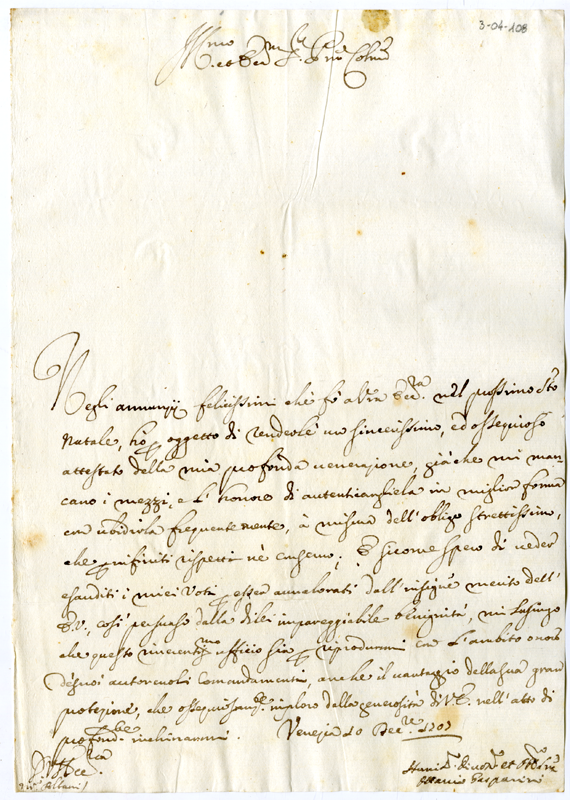 3-04-108
Ill.mo
et Ecc.mo S.r P.ron Col.mo
Negli annunzij felicissimi che fò a Vra Ecc.za nel prossimo S.to
Natale, hò p oggetto di renderle un sincerissimo, ed ossequioso
attestato della mia profonda ueneratione, già che mi man
cano i mezzi, e l'honore di autenticarghiela in miglior forma
con ubidirla frequentemente, à misura dell'obligo strettissimo,
che p infiniti rispetti nè conseruo; E sicome spero di ueder
esauditi i miei Voti p esser auualorati dall'insigne merito dell'
E.V., così persuaso dalla di lei impareggiabile benignità, mi lusingo
che questo riuerentiss.mo ufficio sia p riprodurmi con l'ambito onore
de suoi autoreuoli Comandamenti, anche il uantaggio della sua gran
protezione, che ossequiosam.te imploro dalla generosità di V.E. nell'atto di
profond.te inchinarmi. Venezia 10 Dec.re 1701
D V Ecc.za
Albani)
Humi.o diuo.o et
Gasparini